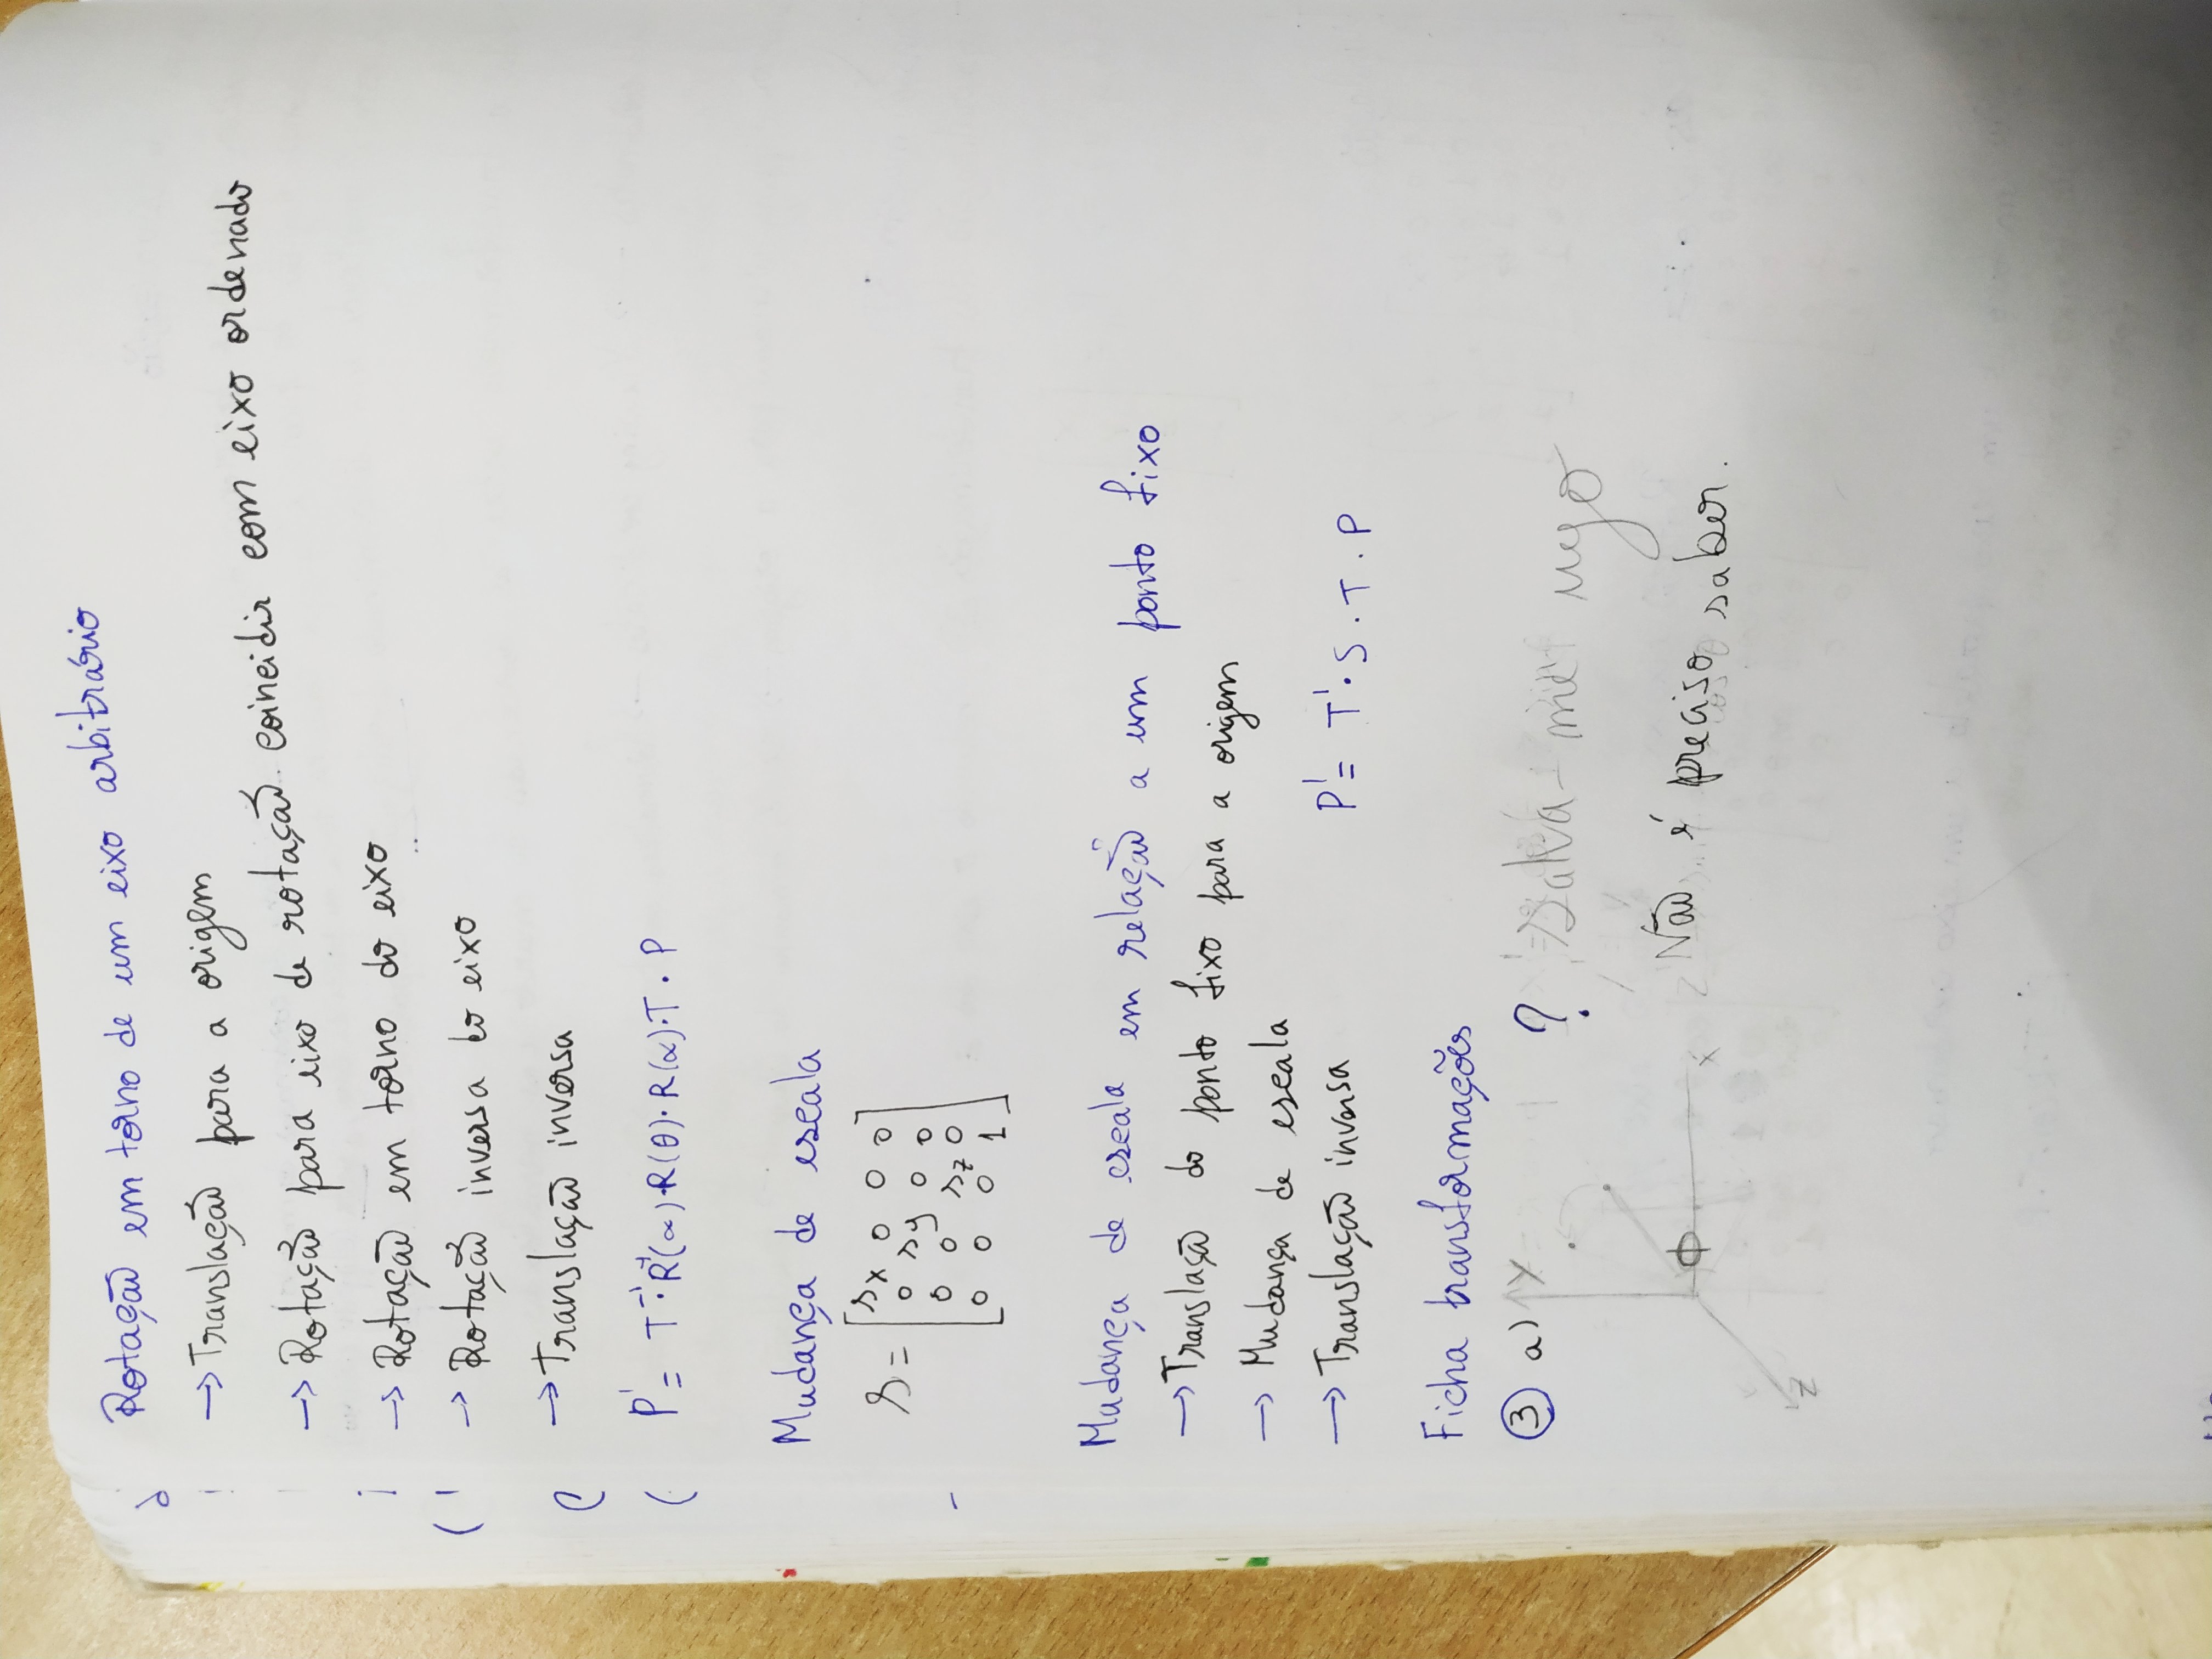 Rotação em torno de um eixo arbitrário
→ Translação para a origem
→ Rotação para eixo de rotação coincidir com eixo ordenado
→ Rotação em torno do eixo
→ Rotação inversa do eixo
→ Translação inversa
P' = T⁻¹·R⁻¹(α)·R(θ)·R(α)·T·P
Mudança de escala
S = [sx 0 0 0
0 sy 0 0
0 0 sz 0
0 0 0 1]
Mudança de escala em relação a um ponto fixo
→ Translação do ponto fixo para a origem
→ Mudança de escala
→ Translação inversa
P' = T'·S·T·P
Ficha transformações
3 a) Y
? Salva-me ugo
ϕ x
Não é preciso saber.
Z